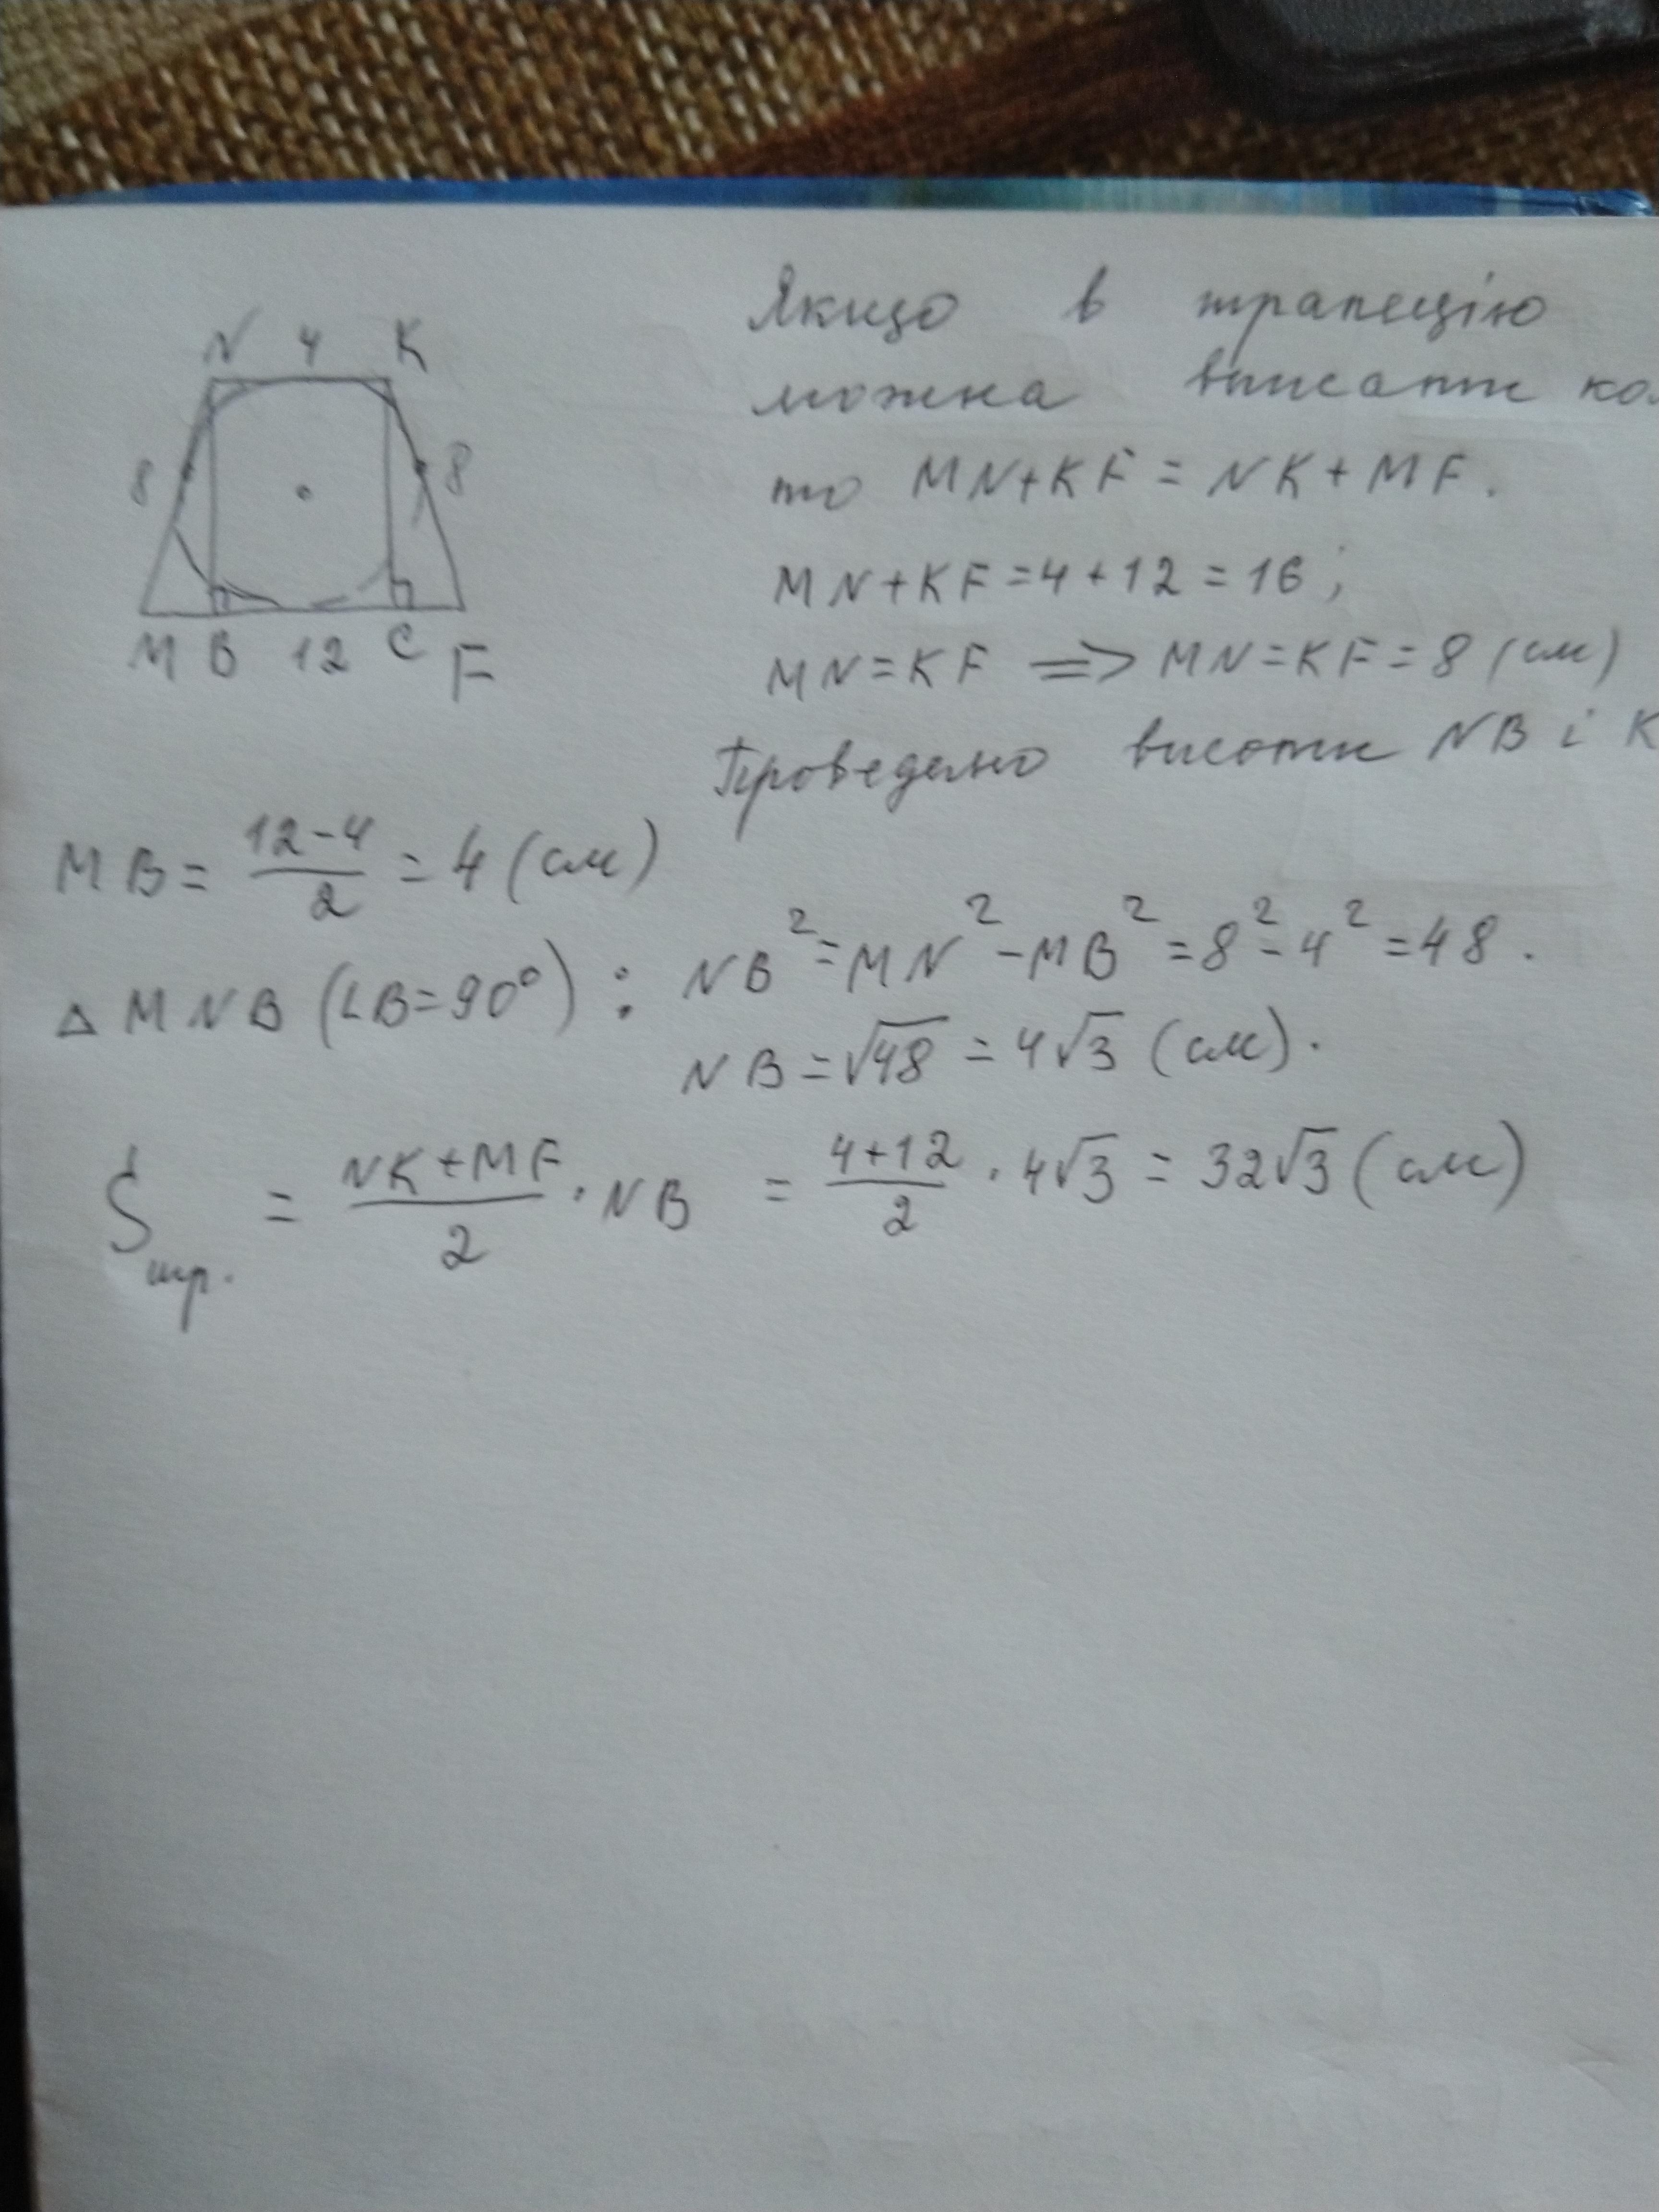 N 4 K
8 8
M B 12 C F
Якщо в трапецію
можна вписати ко
то MN+KF=NK+MF.
MN+KF=4+12=16;
MN=KF => MN=KF=8 (см)
Проведемо висоти NB і K
MB= \frac{12-4}{2} = 4 (см)
△ MNB (∠B=90°) : NB²=MN²-MB²=8²-4²=48.
NB=√48=4√3 (см).
Sтр. = \frac{NK+MF}{2} · NB = \frac{4+12}{2} · 4√3 = 32√3 (см)